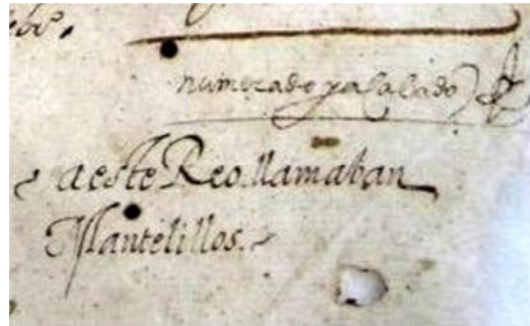 numerado y acabado
a este Reo llamaban
Mantelillos.